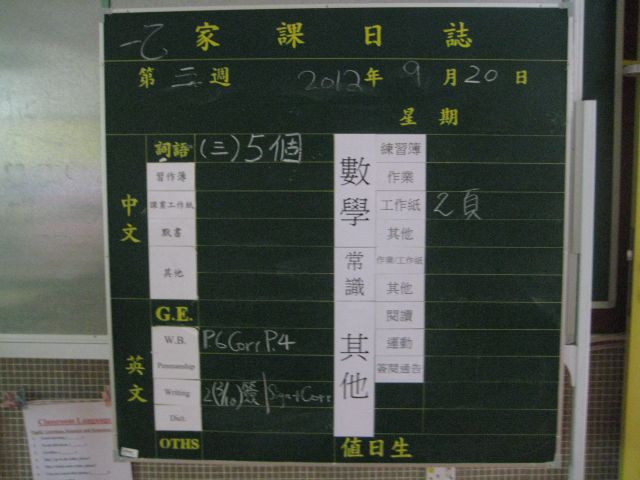 一乙 家課日誌
第三週 2012年9月20日
星期
中文
詞語 (三)5個
習作簿
課業工作紙
默書
其他
英文
G.E.
W.B. P6 Corr P.4
Penmanship
Writing
Dict.
OTHS
數學
練習簿
作業
工作紙 2頁
其他
常識
作業/工作紙
其他
其他
閱讀
運動
簽閱通告
值日生
Classroom Language